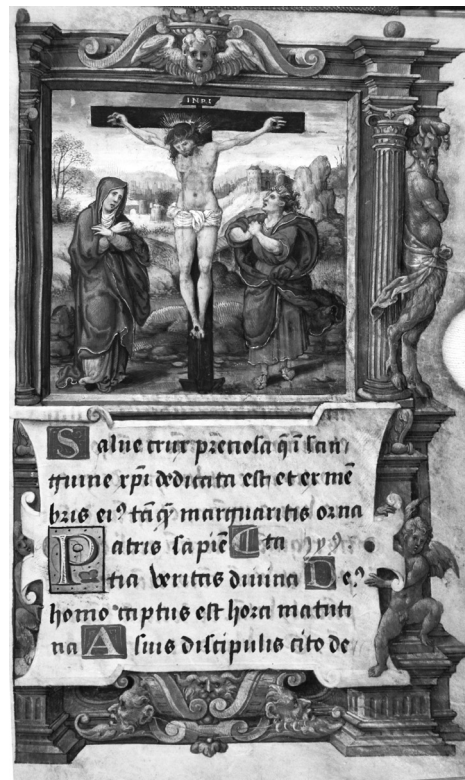 INRI
Salue crux preciosa q̄ i san
guine xpi dedicata est et ex mē
bris eiꝰ tāq̄ marguaritis orna
Patris sapiē ta
tia veritas diuina Deꝰ
homo captus est hora matuti
na A suis discipulis cito de